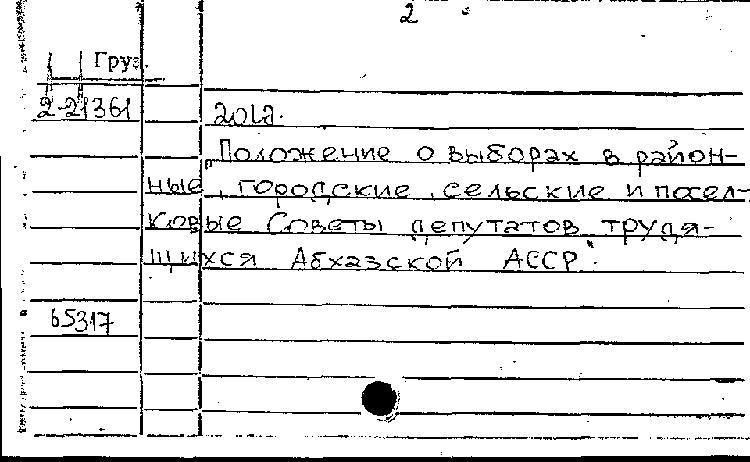 2
Груз.
2-21361
201 д.
„Положение о выборах в район-
ные, городские, сельские и посел-
ковые Советы депутатов трудя-
щихся Абхазской АССР".
65317